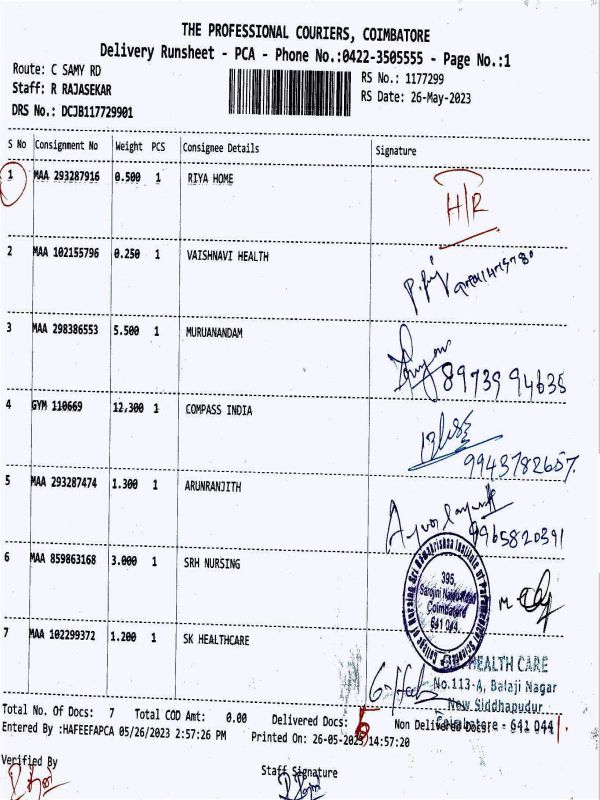 THE PROFESSIONAL COURIERS, COIMBATORE
Delivery Runsheet - PCA - Phone No.:0422-3505555 - Page No.:1
Route: C SAMY RD
RS No.: 1177299
Staff: R RAJASEKAR
RS Date: 26-May-2023
DRS No.: DCJB117729901
S No Consignment No Weight PCS Consignee Details Signature
1 MAA 293287916 0.500 1 RIYA HOME H/R
2 MAA 102155796 0.250 1 VAISHNAVI HEALTH
3 MAA 298386553 5.500 1 MURUANANDAM 89739 94635
4 GYM 110669 12,300 1 COMPASS INDIA 9943782657.
5 MAA 293287474 1.300 1 ARUNRANJITH 9965820391
6 MAA 859863168 3.000 1 SRH NURSING
College of Nursing Sri Ramakrishna Institute of Paramedical Sciences
395,
Sarojini Naidu Road
Coimbatore
641 044.
7 MAA 102299372 1.200 1 SK HEALTHCARE
HEALTH CARE
No.113-A, Balaji Nagar
New Siddhapudur
Coimbatore - 641 044
Total No. Of Docs: 7 Total COD Amt: 0.00 Delivered Docs: Non Delivered Docs:
Entered By :HAFEEFAPCA 05/26/2023 2:57:26 PM Printed On: 26-05-2023 14:57:20
Verified By
Staff Signature